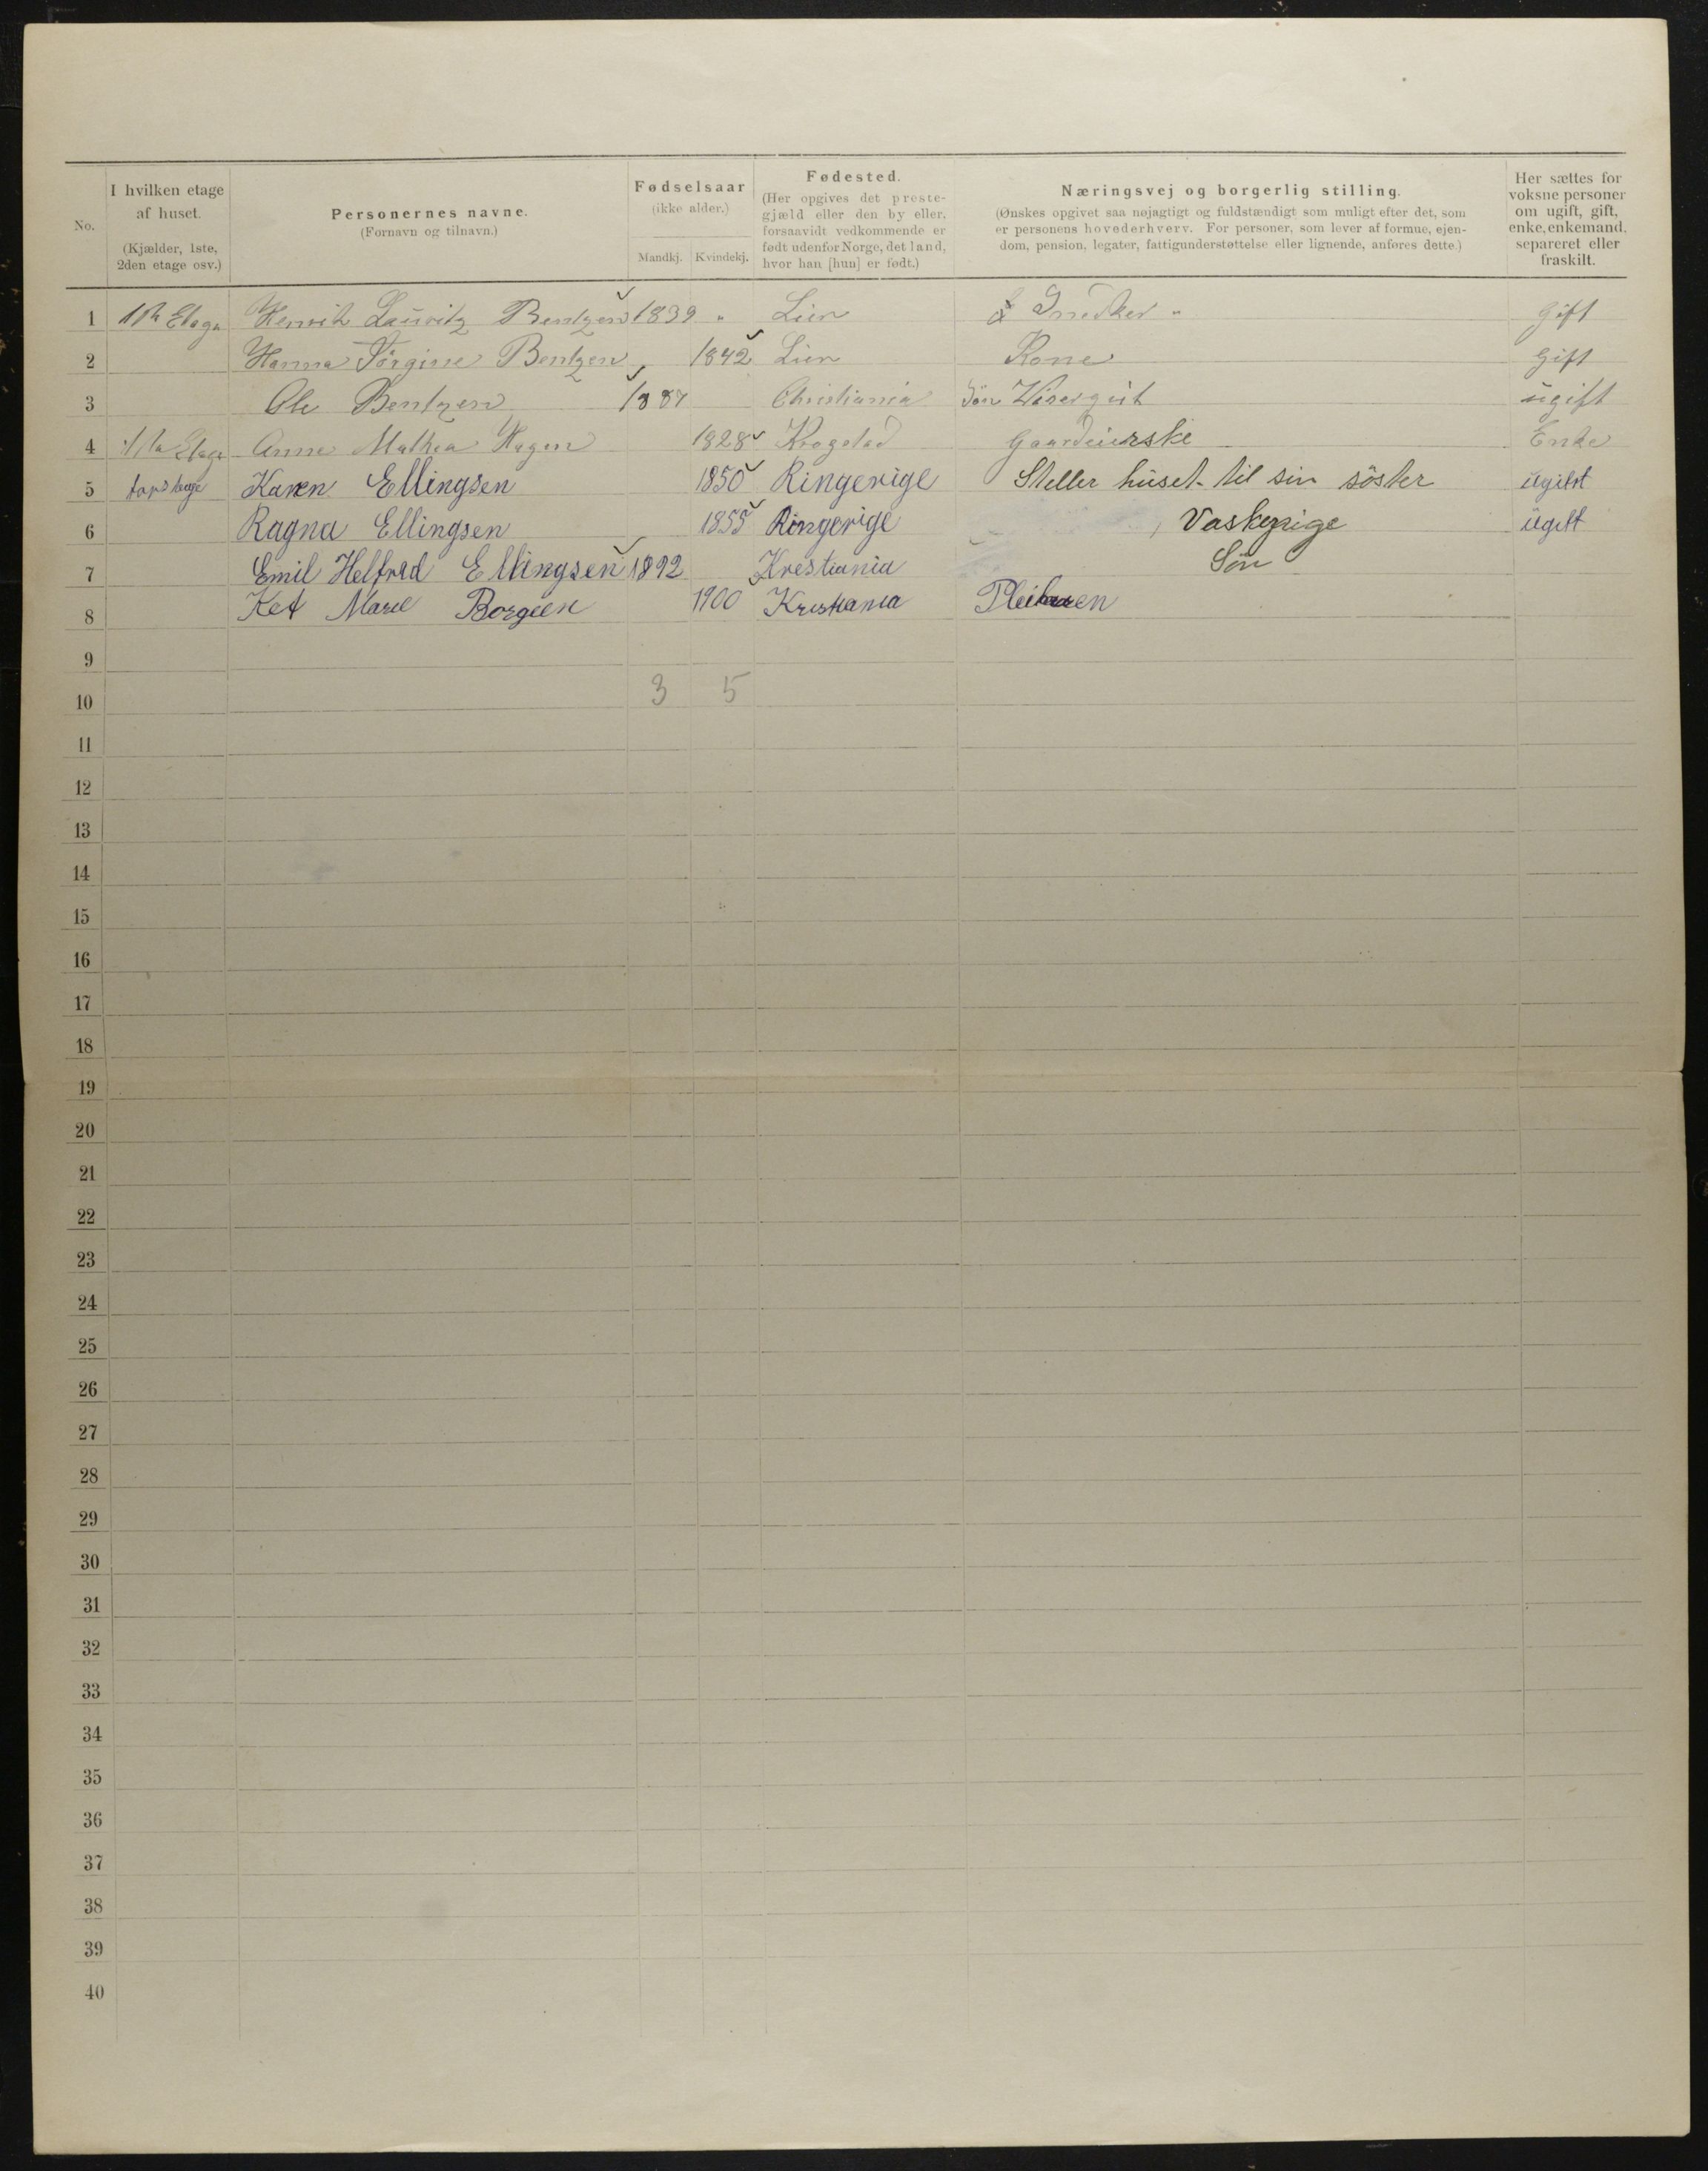 No.
I hvilken etage af huset.
(Kjælder, 1ste, 2den etage osv.)
Personernes navne.
(Fornavn og tilnavn.)
Fødselsaar
(ikke alder.)
Mandkj. Kvindekj.
Fødested.
(Her opgives det prestegjæld eller den by eller, forsaavidt vedkommende er født udenfor Norge, det land, hvor han [hun] er født.)
Næringsvej og borgerlig stilling.
(Ønskes opgivet saa nøjagtigt og fuldstændigt som muligt efter det, som er personens hovederhverv. For personer, som lever af formue, ejendom, pension, legater, fattigunderstøttelse eller lignende, anføres dette.)
Her sættes for voksne personer om ugift, gift, enke, enkemand, separeret eller fraskilt.
1 Henrik Lauritz Bentzen 1839 " Lier Snedker " gift
2 Hanna Jørgine Bentzen 1842 Lier Kone gift
3 Ole Bentzen 1887 Christiania Søn ugift
4 Anne Mathea Hagen 1828 Krogstad Enke
5 Karen Ellingsen 1850 Ringerige Steller huset til sin söster ugift
6 Ragna Ellingsen 1855 Ringerige Vaskepige ugift
7 Emil Helfred Ellingsen 1892 Krestiania Sön
8 Marie Borgeen 1900 Kristiania
9
10 3 5
11
12
13
14
15
16
17
18
19
20
21
22
23
24
25
26
27
28
29
30
31
32
33
34
35
36
37
38
39
40